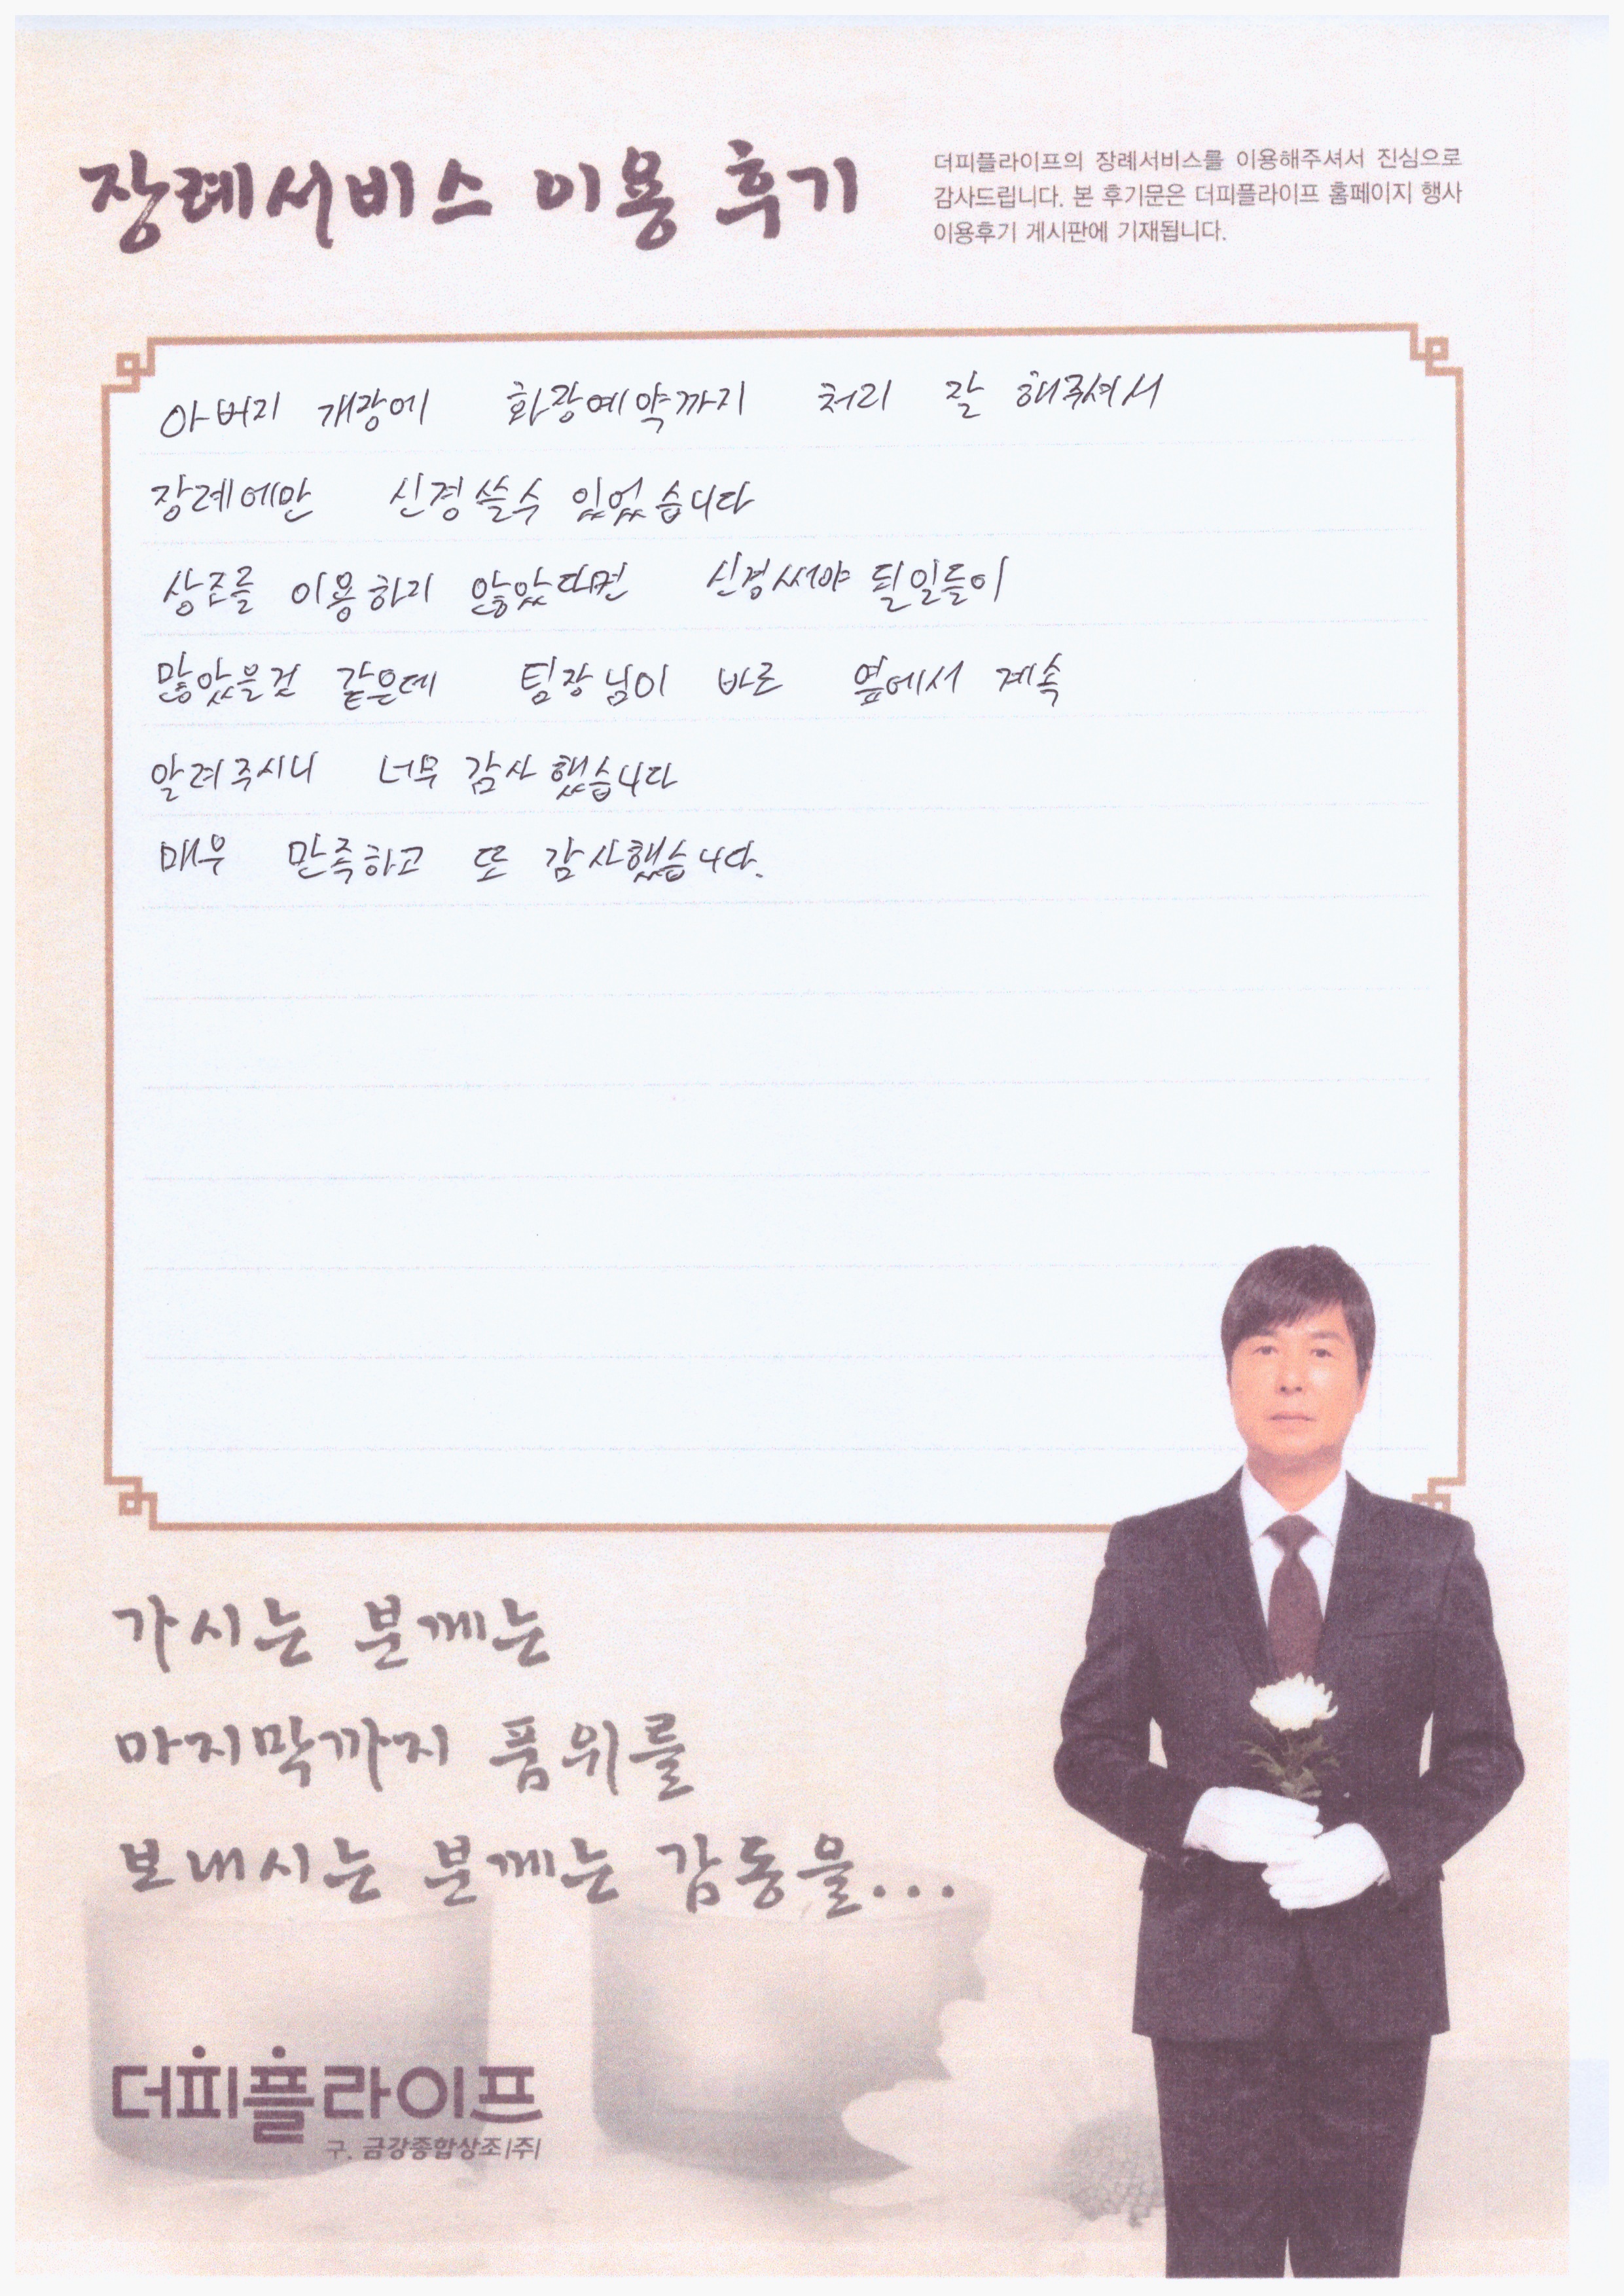 장례서비스 이용 후기
더피플라이프의 장례서비스를 이용해주셔서 진심으로
감사드립니다. 본 후기문은 더피플라이프 홈페이지 행사
이용후기 게시판에 기재됩니다.
아버지 개장에 화장예약까지 처리 잘 해주셔서
장례에만 신경쓸수 있었습니다
상조를 이용하지 않았다면 신경써야 될일들이
많았을건 같은데 팀장님이 바로 옆에서 계속
알려주시니 너무 감사했습니다
매우 만족하고 또 감사했습니다.
가시는 분께는
마지막까지 품위를
보내시는 분께는 감동을...
더피플라이프
구. 금강종합상조(주)